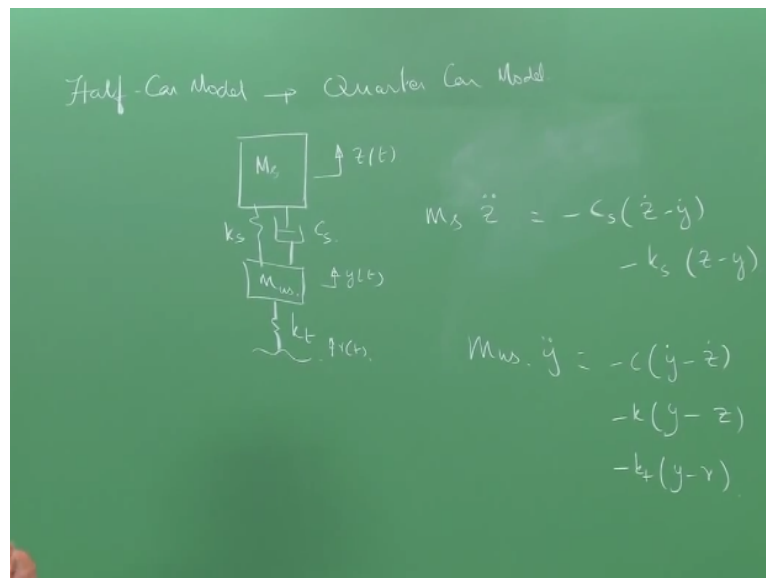 Half-Car Model → Quarter Car Model
Ms
z(t)
ks
Cs.
Mus.
y(t)
kt
r(t).
Ms z̈ = -Cs(ż-ẏ)
-ks (z-y)
Mus. ÿ = -c(ẏ-ż)
-k(y-z)
-kt(y-r).